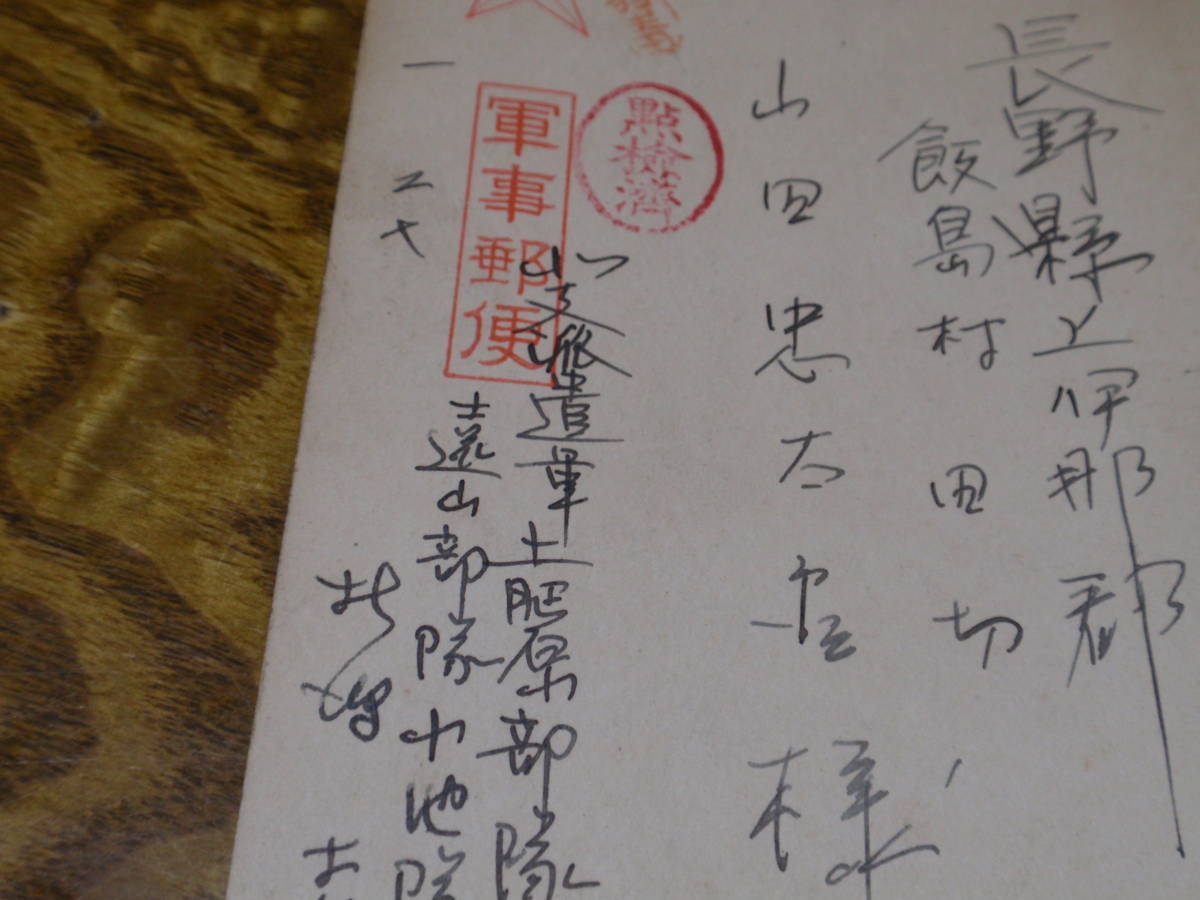 長野縣上伊那郡
飯島村田切
山田忠太郎様
點檢濟
軍事郵便
北支派遣軍土肥原部隊
遠山部隊小池隊
一 二七